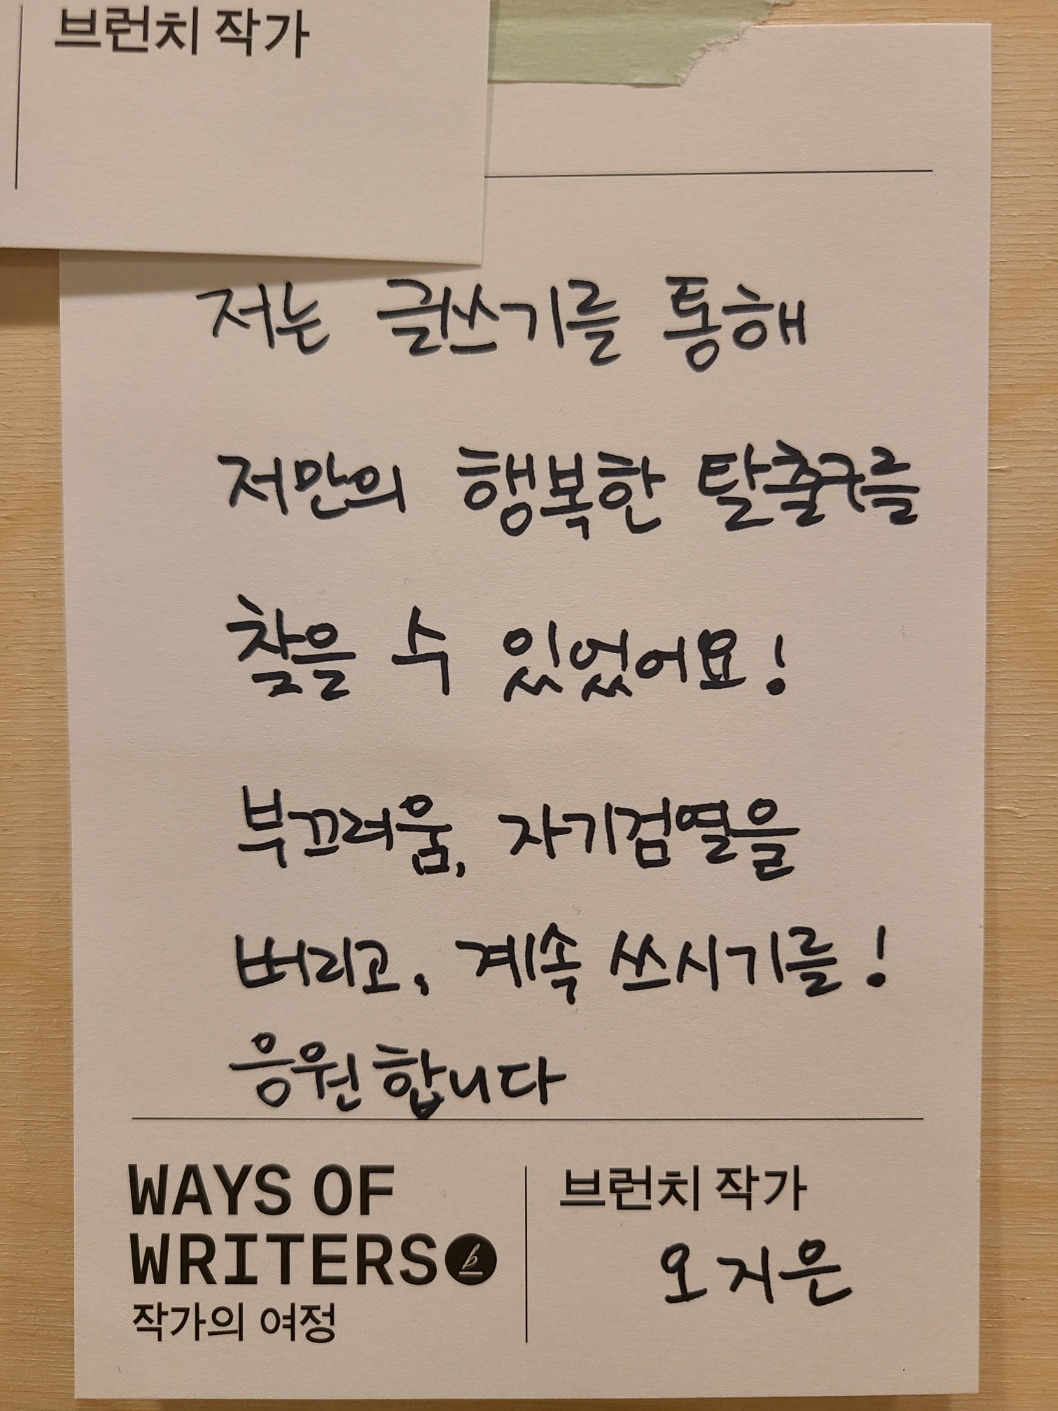 브런치 작가
저는 글쓰기를 통해
저만의 행복한 탈출구를
찾을 수 있었어요!
부끄러움, 자기검열을
버리고, 계속 쓰시기를!
응원합니다
WAYS OF
WRITERS
작가의 여정
브런치 작가
오지은